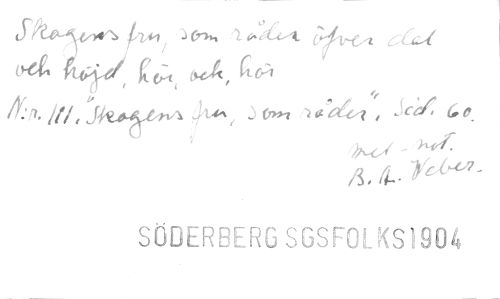 Skogens fru, som råder öfver dal
och höjd, hör, och, hör
N:r. 111. "Skogens fru, som råder". Sid. 60.
mel-not.
B. A. Weber.
SÖDERBERG SGSFOLKS1904